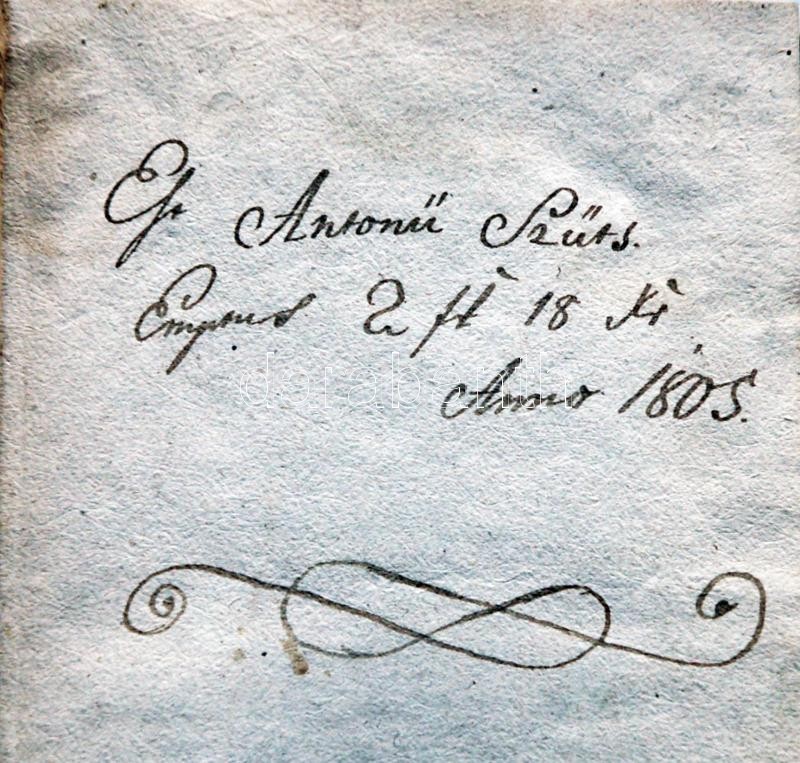 Est Antonii Szüts.
Emptus 2 ft 18 Xr
Anno 1805.
darabanth